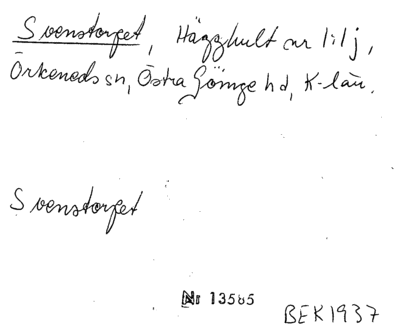 Svenstorpet, Hägghult nr 1 i l j,
Örkeneds sn, Östra Göinge hd, K-län.
Svenstorpet
Nr 13585
BEK 1937